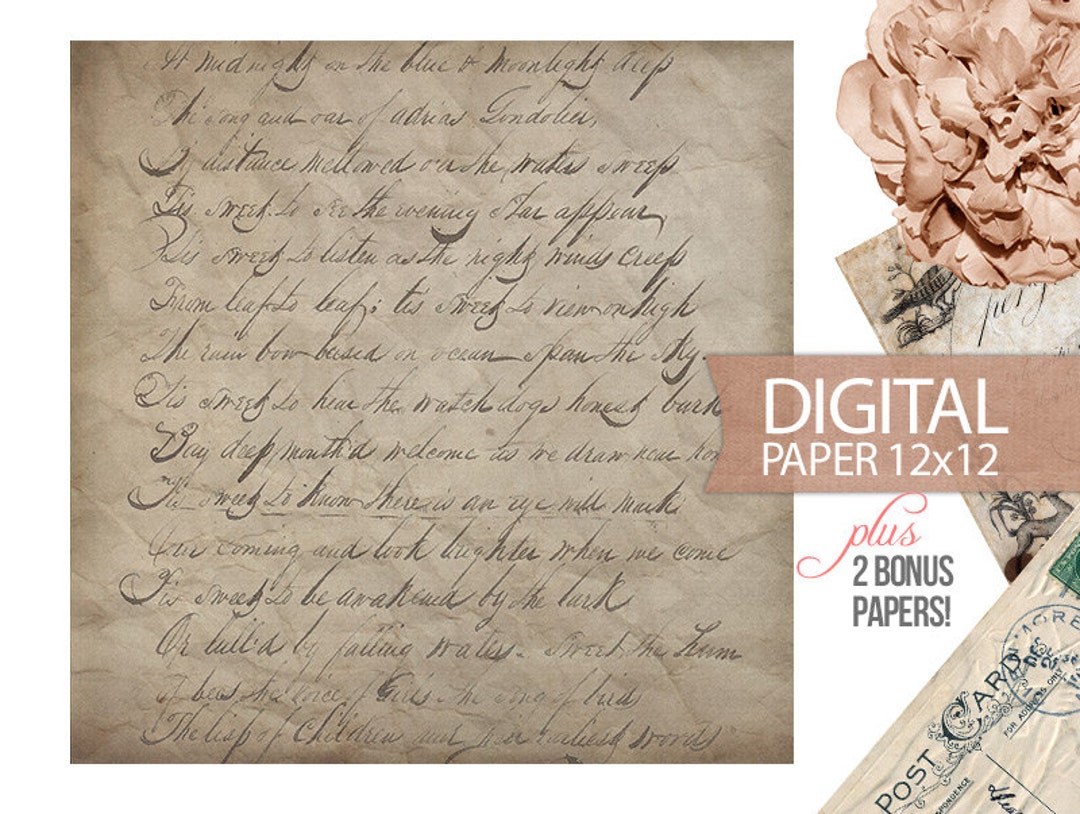 At midnight on the blue & moonlight deep
The song and oar of adrias Gondolier,
By distance mellowed o'er the waters sweep
Tis sweet to see the evening star appear,
Tis sweet to listen as the night winds creep
From leaf to leaf; tis sweet to view on high
The rain bow based on ocean span the sky.
Tis sweet to hear the watch dogs honest bark
Bay deep mouth'd welcome as we draw near hom
Tis sweet to know there is an eye will mark
Our coming and look brighter when we come
Tis sweet to be awakened by the lark
Or lull'd by falling waters. sweet the hum
of bees the voice of Girls the song of birds
The lisp of Children and their earliest words
DIGITAL
PAPER 12x12
plus
2 BONUS
PAPERS!
POST CARD
FOR ADDRESS ONLY